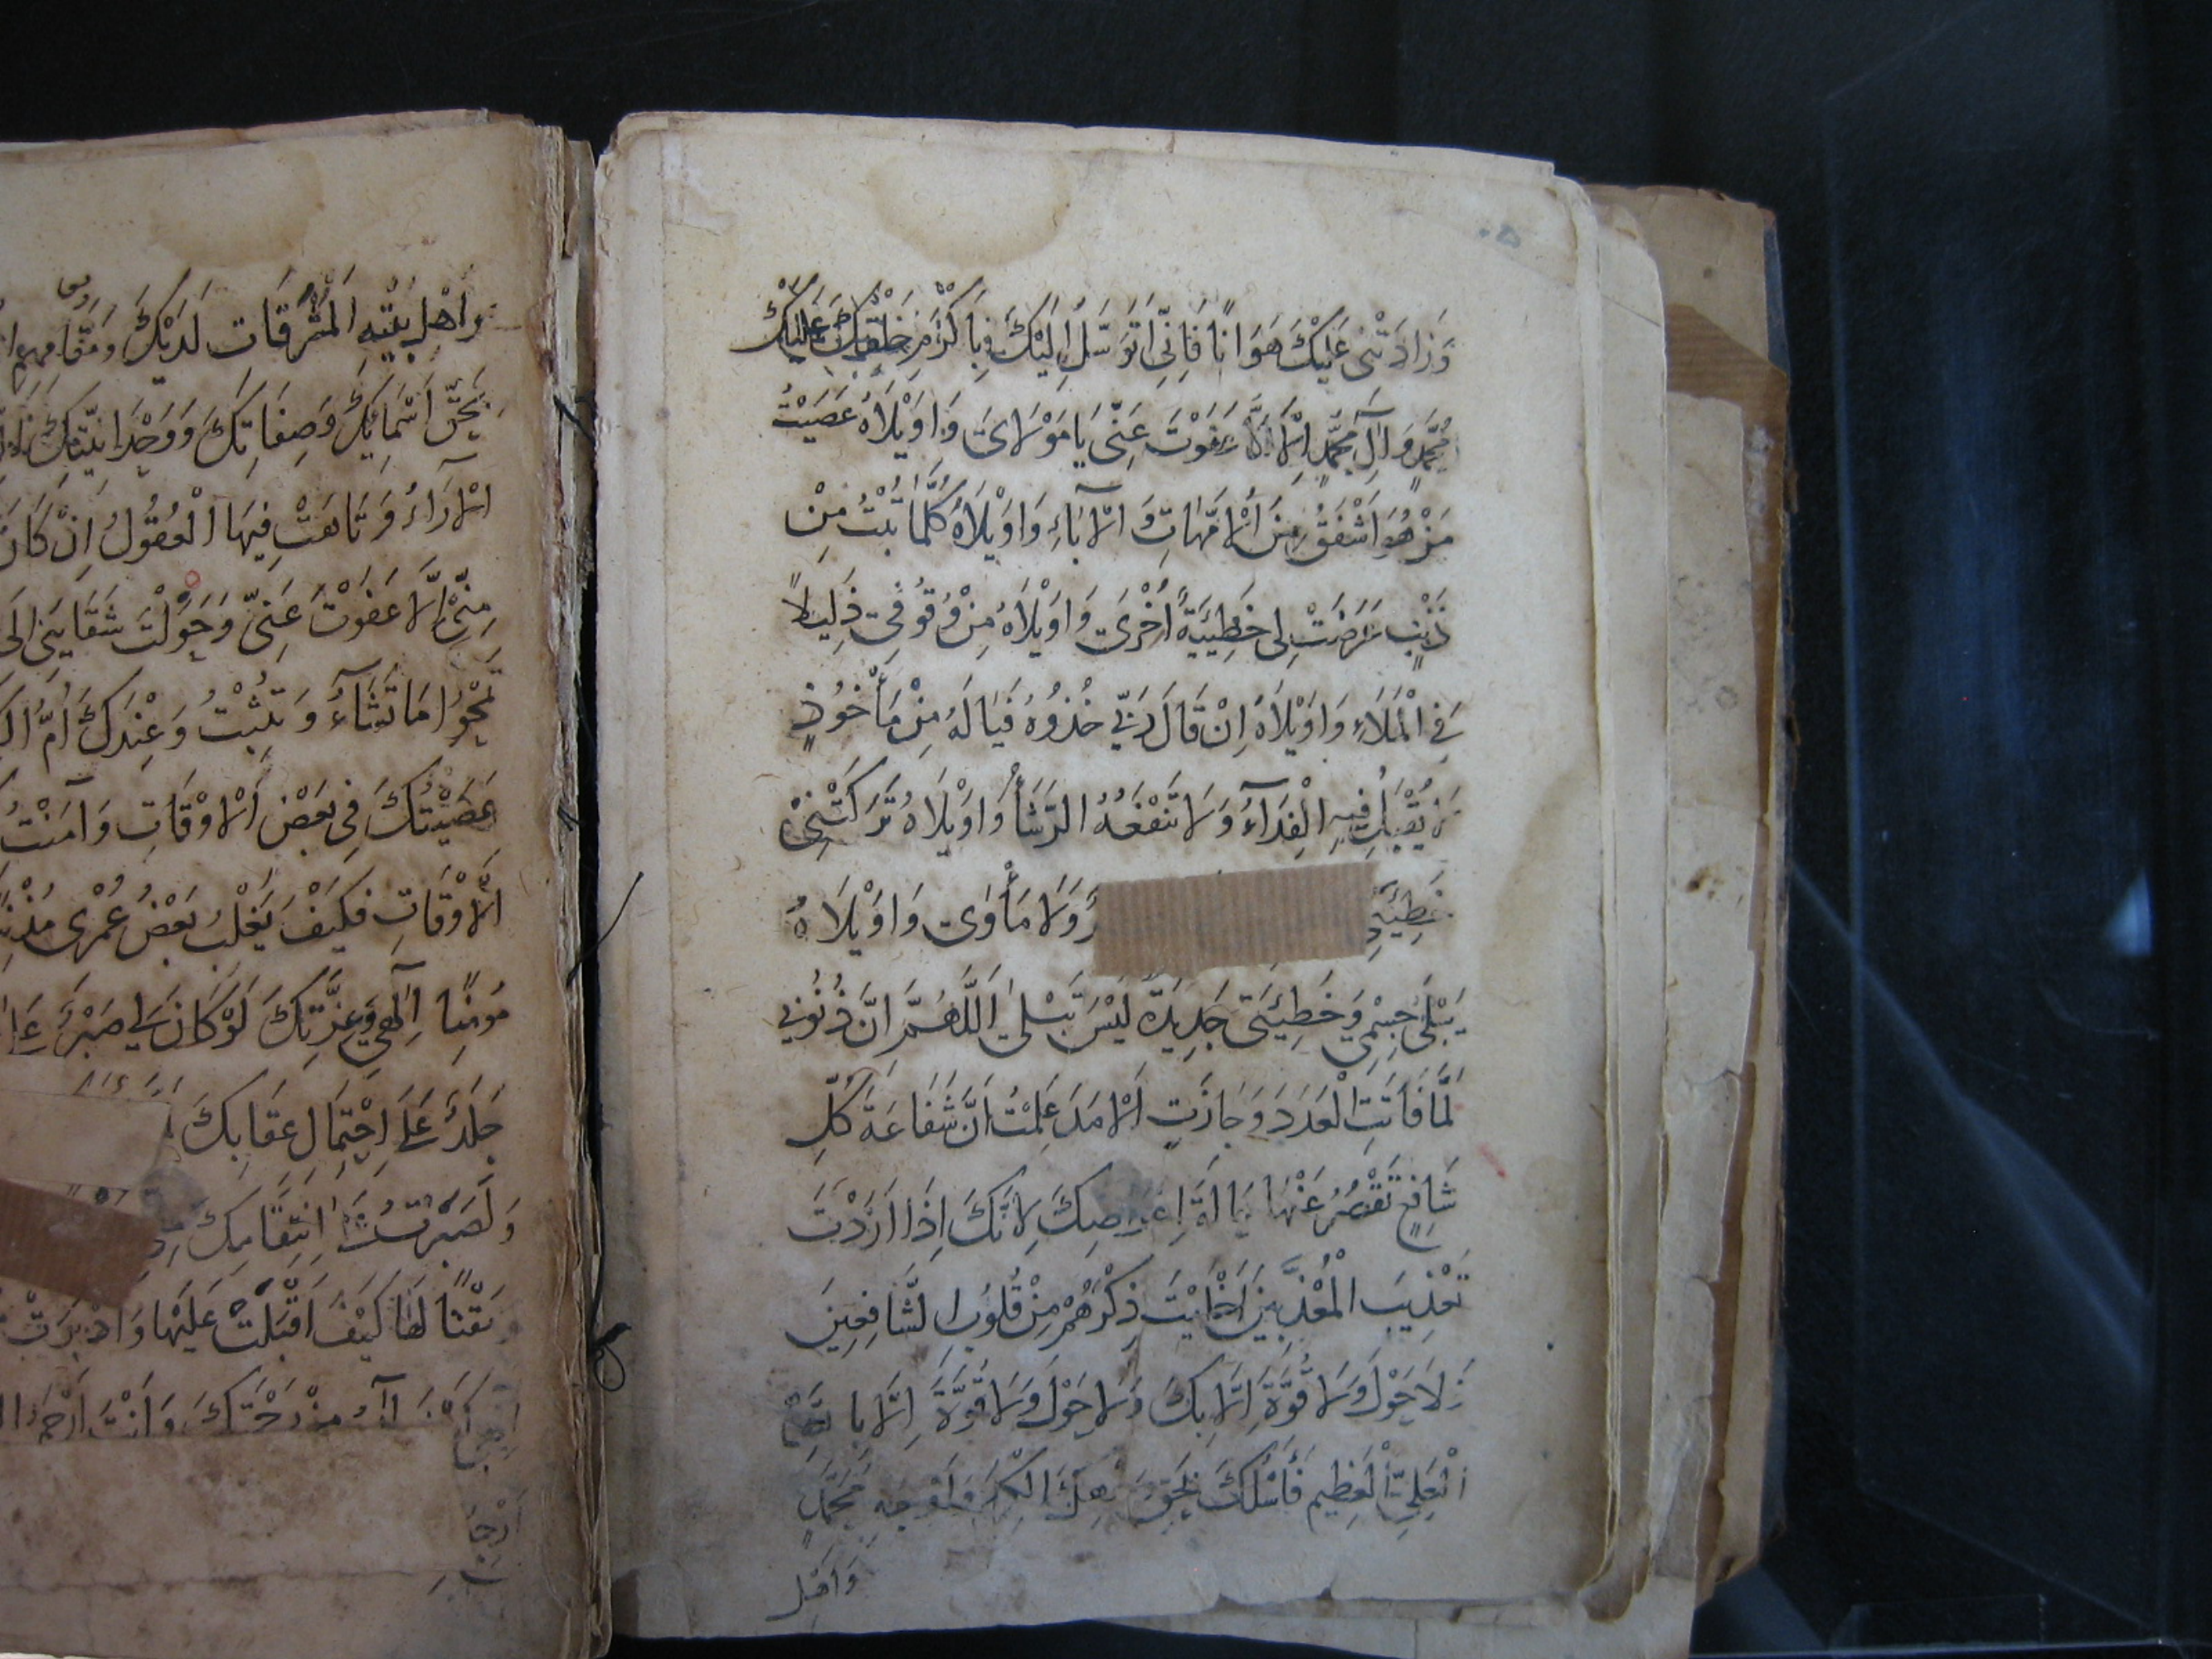 وَزَادَتْنِي عَلَيْكَ هَوَانًا فَإِنِّي اَتَوَسَّلُ اِلَيْكَ بِاَكْرَمِ خَلْقِكَ عَلَيْكَ
مُحَمَّدٍ وَ اٰلِ مُحَمَّدٍ اِلَّا عَفَوْتَ عَنِّى يَا مَوْلَاىَ وَاوَيْلَاهُ عَصَيْتُ
مَنْ هُوَ اَشْفَقُ مِنَ الْاُمَّهَاتِ وَ الْاٰبَاءِ وَاوَيْلَاهُ كُلَّمَا تُبْتُ مِنْ
ذَنْبٍ عَرَضَتْ لِى خَطِيئَةٌ اُخْرَى وَاوَيْلَاهُ مِنْ وُقُوفِى ذَلِيلًا
فِي الْمَلَاءِ وَاوَيْلَاهُ اِنْ قَالَ رَبِّي خُذُوهُ فَيَا لَهُ مِنْ مَأْخُوذٍ
لَا يُقْبَلُ فِيهِ الْفِدَآءُ وَلَا تَنْفَعُهُ الرَّشَأُ وَاوَيْلَاهُ تَرَكَتْنِى
وَلَا مَأْوٰى وَاوَيْلَاهُ
يَبْلَى جِسْمِي وَخَطِيئَتِى جَدِيدَةٌ لَيْسَ تَبْلٰى اَللّٰهُمَّ اِنَّ ذُنُوبِي
لَمَّا فَاتَتِ الْعَدَدَ وَ جَازَتِ الْاَمَدَ عَلِمْتُ اَنَّ شَفَاعَةَ كُلِّ
شَافِعٍ تَقْصُرُ عَنْهَا لِاَنَّكَ اِذَا اَرَدْتَ
تَعْذِيبَ الْمُعَذَّبِينَ اَخْلَيْتَ ذِكْرَهُمْ مِنْ قُلُوبِ الشَّافِعِينَ
لَا حَوْلَ وَلَا قُوَّةَ اِلَّا بِكَ وَلَا حَوْلَ وَلَا قُوَّةَ اِلَّا بِاللّٰهِ
الْعَلِىِّ الْعَظِيمِ فَأَسْئَلُكَ بِحَقِّ مُحَمَّدٍ
وَ اَهْلِ
وَاَهْلِ بَيْتِهِ الْمُشَرَّفَاتِ لَدَيْكَ
بِحَقِّ اَسْمَائِكَ وَصِفَاتِكَ وَ وَحْدَانِيَّتِكَ
الْاٰرَاءُ وَتَاهَتْ فِيهَا الْعُقُولُ اِنْ كَانَ
مِنِّى اِلَّا عَفَوْتَ عَنِّى وَحَوَّلْتَ شَقَائِى اِلَى
تَمْحُوا مَا تَشَآءُ وَ تُثْبِتُ وَ عِنْدَكَ اُمُّ
عَصَيْتُكَ فِى بَعْضِ الْاَوْقَاتِ وَاٰمَنْتُ
الْاَوْقَاتِ فَكَيْفَ يَغْلِبُ بَعْضُ عُمْرِى مُذْنِبًا
مُؤْمِنًا اِلٰهِي وَعِزَّتِكَ لَوْ كَانَ لِي صَبْرٌ
جَلَدٌ عَلَى احْتِمَالِ عِقَابِكَ
وَلَصَبَرْتُ اِنْتِقَامِكَ
مَقْتًا لَهَا كَيْفَ اَقْبَلَتْ عَلَيْهَا وَاَدْبَرَتْ
مِنْ رَحْمَتِكَ وَاَنْتَ اَرْحَمُ